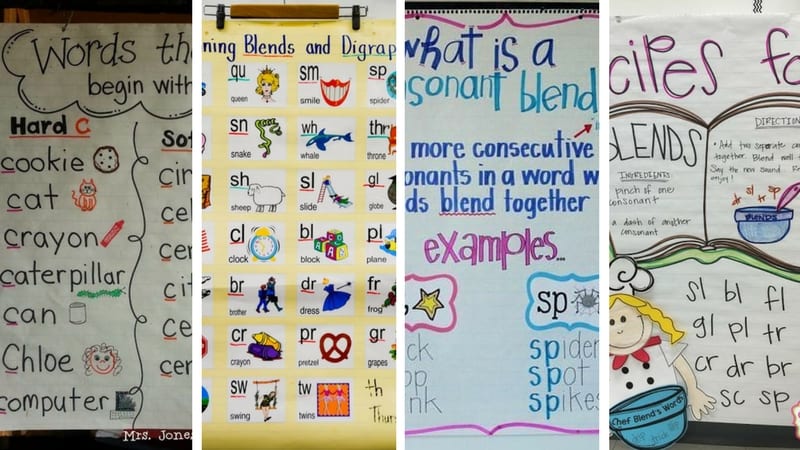 Words th
begin with
Hard C
cookie
cat
crayon
caterpillar
can
Chloe
computer
Sof
cir
ce
cen
cit
ce
cer
Mrs. Jones
ning Blends and Digrap
qu
queen
sm
smile
sp
spider
sn
snake
wh
whale
thr
throne
sh
sheep
sl
slide
gl
globe
cl
clock
bl
block
pl
plane
br
brother
dr
dress
fr
frog
cr
crayon
pr
pretzel
gr
grapes
sw
swing
tw
twins
th
Thur
what is a
sonant blend
more consecutive
onants in a word w
ds blend together
examples...
sp
ck
op
nk
spider
spot
spikes
cipes fo
BLENDS
INGREDIENTS:
pinch of one
consonant
a dash of another
consonant
DIRECTION
• Add two separate con
together. Blend well
Say the new sound.
enjoy!
sl
sp
dr
tr
BLENDS
sl bl fl
gl pl tr
cr dr br
sc sp
Chef Blend's Words
trick